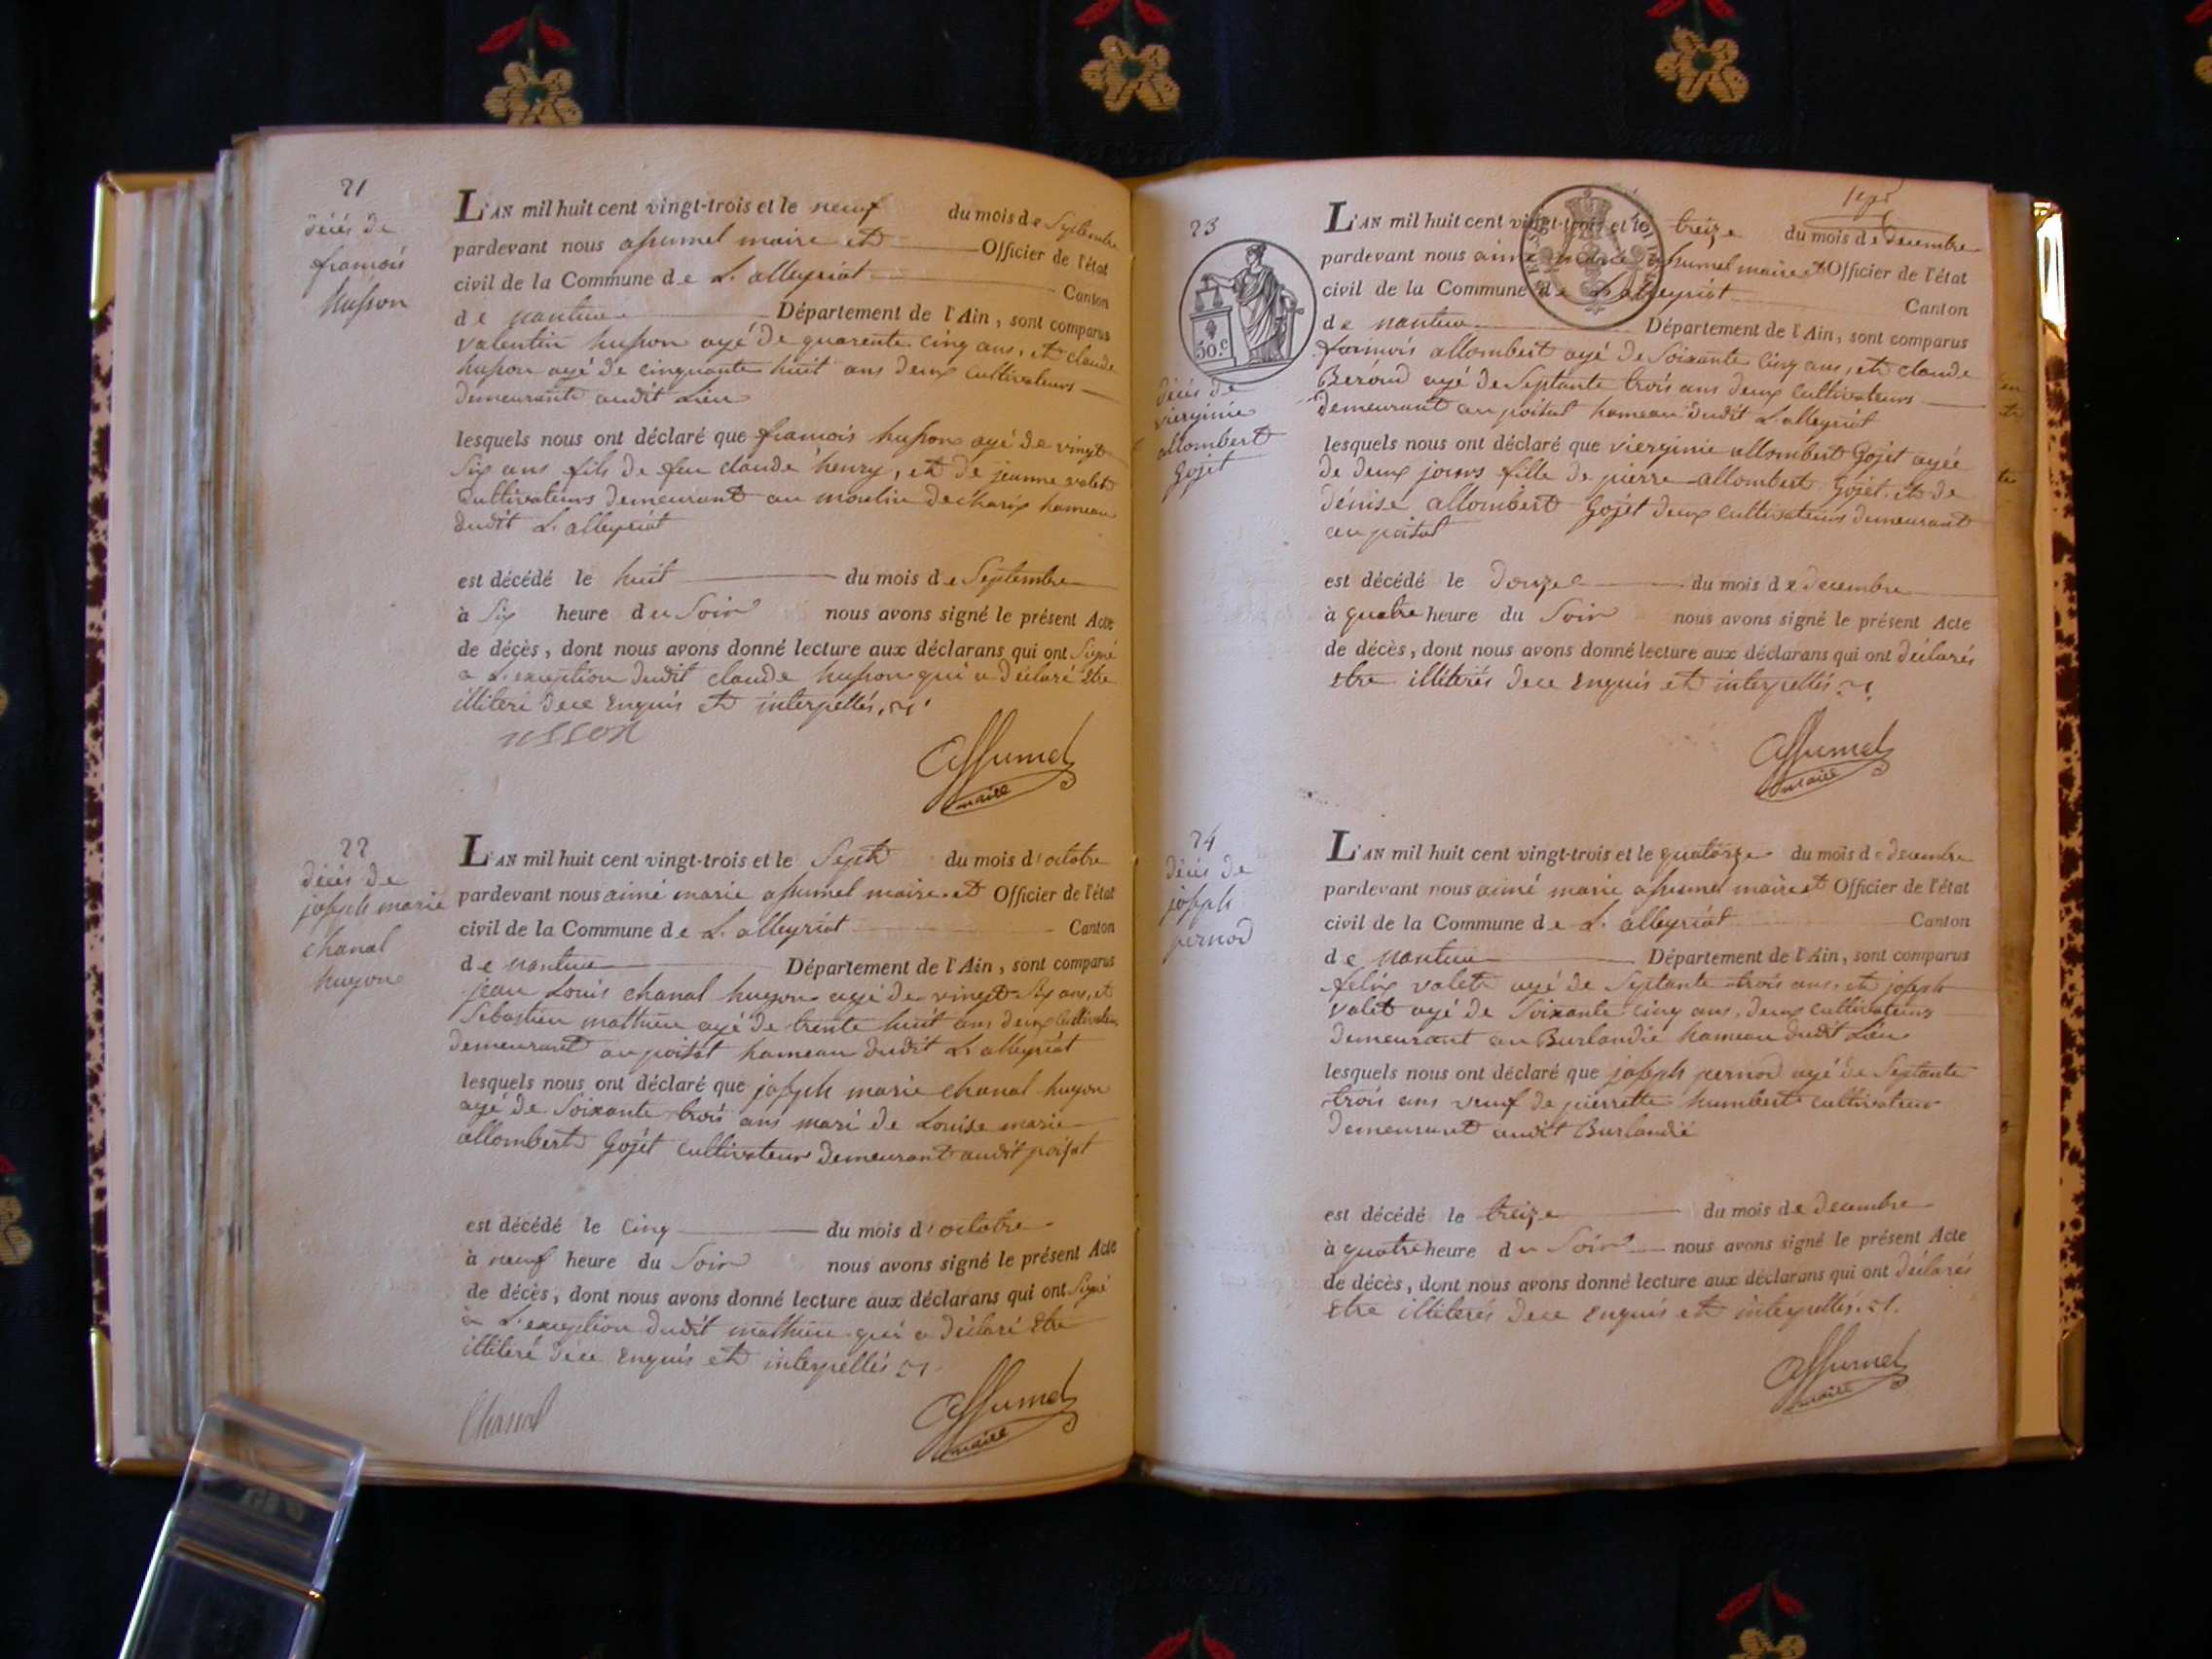 21
décés de
francois
husson
L'AN mil huit cent vingt-trois et le neuf du mois de Septembre
pardevant nous assumel maire et Officier de l'état
civil de la Commune de L. alleyriat Canton
de nantua Département de l'Ain, sont comparus
valentin husson agé de quarente cinq ans, et claude
husson agé de cinquante huit ans deux cultivateurs
demeurants audit Lieu
lesquels nous ont déclaré que francois husson agé de vingt
Six ans fils de feu claude henry, et de jeanne valet
Cultivateurs demeurant au moulin de charix hameau
dudit L. alleyriat
est décédé le huit du mois de Septembre
à Six heure du Soir nous avons signé le présent Acte
de décès, dont nous avons donné lecture aux déclarans qui ont Signé
a L'exception dudit claude husson qui a déclaré Etre
illitéré dece Enquis et interpellés.
usson
assumel
maire
22
décés de
joseph marie
chanal
hugon
L'AN mil huit cent vingt-trois et le Sept du mois d'octobre
pardevant nous aimé marie assumel maire et Officier de l'état
civil de la Commune de L. alleyriat Canton
de nantua Département de l'Ain, sont comparus
jean Louis chanal hugon agé de vingt Six ans, et
Sebastien mathieu agé de trente huit ans deux Cultivateurs
demeurant au poisat hameau dudit L. alleyriat
lesquels nous ont déclaré que joseph marie chanal hugon
agé de Soixante trois ans mari de Louise marie
allombert Gojet cultivateur demeurant audit poisat
est décédé le cinq du mois d'octobre
à neuf heure du Soir nous avons signé le présent Acte
de décès, dont nous avons donné lecture aux déclarans qui ont Signé
à L'exception dudit mathieu qui a déclaré Etre
illitéré dece Enquis et interpellés
Chanal
assumel
maire
23
50.c
décés de
vierginie
allombert
Gojet
L'AN mil huit cent vingt-trois et le treize du mois de decembre
pardevant nous aimé marie assumel maire et Officier de l'état
civil de la Commune de L. alleyriat Canton
de nantua Département de l'Ain, sont comparus
francois allombert agé de Soixante Cinq ans, et claude
Beroud agé de Septante trois ans deux cultivateurs
demeurant au poisat hameau dudit L. alleyriat
lesquels nous ont déclaré que vierginie allombert Gojet agée
de deux jours fille de pierre allombert Gojet et de
dénise allombert Gojet deux cultivateurs demeurant
au poisat
est décédé le douze du mois de decembre
à quatre heure du Soir nous avons signé le présent Acte
de décès, dont nous avons donné lecture aux déclarans qui ont déclarés
Etre illitérés dece Enquis et interpellés
assumel
maire
24
décés de
joseph
pernod
L'AN mil huit cent vingt-trois et le quatorze du mois de decembre
pardevant nous aimé marie assumel maire et Officier de l'état
civil de la Commune de L. alleyriat Canton
de nantua Département de l'Ain, sont comparus
felix valet agé de Septante trois ans, et joseph
valet agé de Soixante Cinq ans, deux cultivateurs
demeurant au Burlandié hameau dudit Lieu
lesquels nous ont déclaré que joseph pernod agé de Septante
trois ans veuf de pierrette humbert cultivateur
demeurant audit Burlandié
est décédé le treize du mois de decembre
à quatre heure du Soir nous avons signé le présent Acte
de décès, dont nous avons donné lecture aux déclarans qui ont déclarés
Etre illiterés dece Enquis et interpellés.
assumel
maire